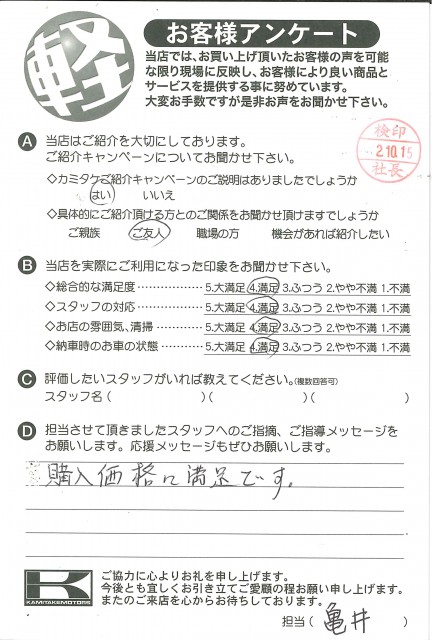 軽
お客様アンケート
当店では、お買い上げ頂いたお客様の声を可能
な限り現場に反映し、お客様により良い商品と
サービスを提供する事に努めています。
大変お手数ですが是非お声をお聞かせ下さい。
検印
2.10.15
社長
A 当店はご紹介を大切にしております。
ご紹介キャンペーンについてお聞かせ下さい。
◇カミタケご紹介キャンペーンのご説明はありましたでしょうか
はい いいえ
◇具体的にご紹介頂ける方とのご関係をお聞かせ頂けますでしょうか
ご親族 ご友人 職場の方 機会があれば紹介したい
B 当店を実際にご利用になった印象をお聞かせ下さい。
◇総合的な満足度……………5.大満足 4.満足 3.ふつう 2.やや不満 1.不満
◇スタッフの対応……………5.大満足 4.満足 3.ふつう 2.やや不満 1.不満
◇お店の雰囲気、清掃………5.大満足 4.満足 3.ふつう 2.やや不満 1.不満
◇納車時のお車の状態………5.大満足 4.満足 3.ふつう 2.やや不満 1.不満
C 評価したいスタッフがいれば教えてください。(複数回答可)
スタッフ名( )( )( )
D 担当させて頂きましたスタッフへのご指摘、ご指導メッセージを
お願いします。応援メッセージもぜひお願いします。
購入価格に満足です。
K
KAMITAKEMOTORS
ご協力に心よりお礼を申し上げます。
今後とも宜しくお引き立てご愛顧の程お願い申し上げます。
またのご来店を心からお待ちしております。
担当( 亀井 )